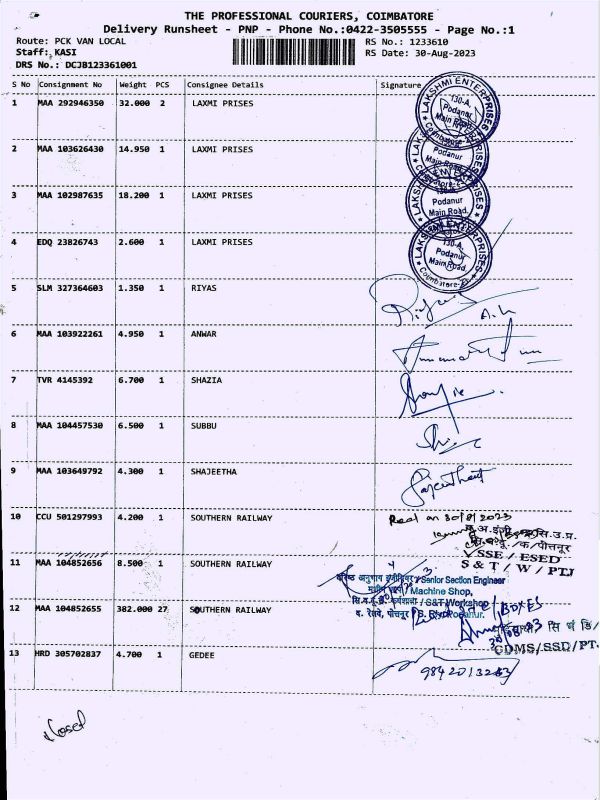 THE PROFESSIONAL COURIERS, COIMBATORE
Delivery Runsheet - PNP - Phone No.:0422-3505555 - Page No.:1
Route: PCK VAN LOCAL RS No.: 1233610
Staff: KASI RS Date: 30-Aug-2023
DRS No.: DCJB123361001
S No Consignment No Weight PCS Consignee Details Signature
1 MAA 292946350 32.000 2 LAXMI PRISES
LAKSHMI ENTERPRISES 130-A, Podanur Main Road, Coimbatore
2 MAA 103626430 14.950 1 LAXMI PRISES
Podanur Main Road
3 MAA 102987635 18.200 1 LAXMI PRISES
Podanur Main Road
4 EDQ 23826743 2.600 1 LAXMI PRISES
LAKSHMI ENTERPRISES 130-A, Podanur Main Road, Coimbatore
5 SLM 327364603 1.350 1 RIYAS
6 MAA 103922261 4.950 1 ANWAR
7 TVR 4145392 6.700 1 SHAZIA
8 MAA 104457530 6.500 1 SUBBU
9 MAA 103649792 4.300 1 SHAJEETHA
10 CCU 501297993 4.200 1 SOUTHERN RAILWAY
Recd on 30/8/2023
VSSE / ESED
S & T / W / PTJ
11 MAA 104852656 8.500 1 SOUTHERN RAILWAY
Senior Section Engineer
Machine Shop,
S&T Workshop
Podanur.
12 MAA 104852655 382.000 27 SOUTHERN RAILWAY
BOXES
CDMS/SSD/PT.
13 HRD 305702837 4.700 1 GEDEE
Closed